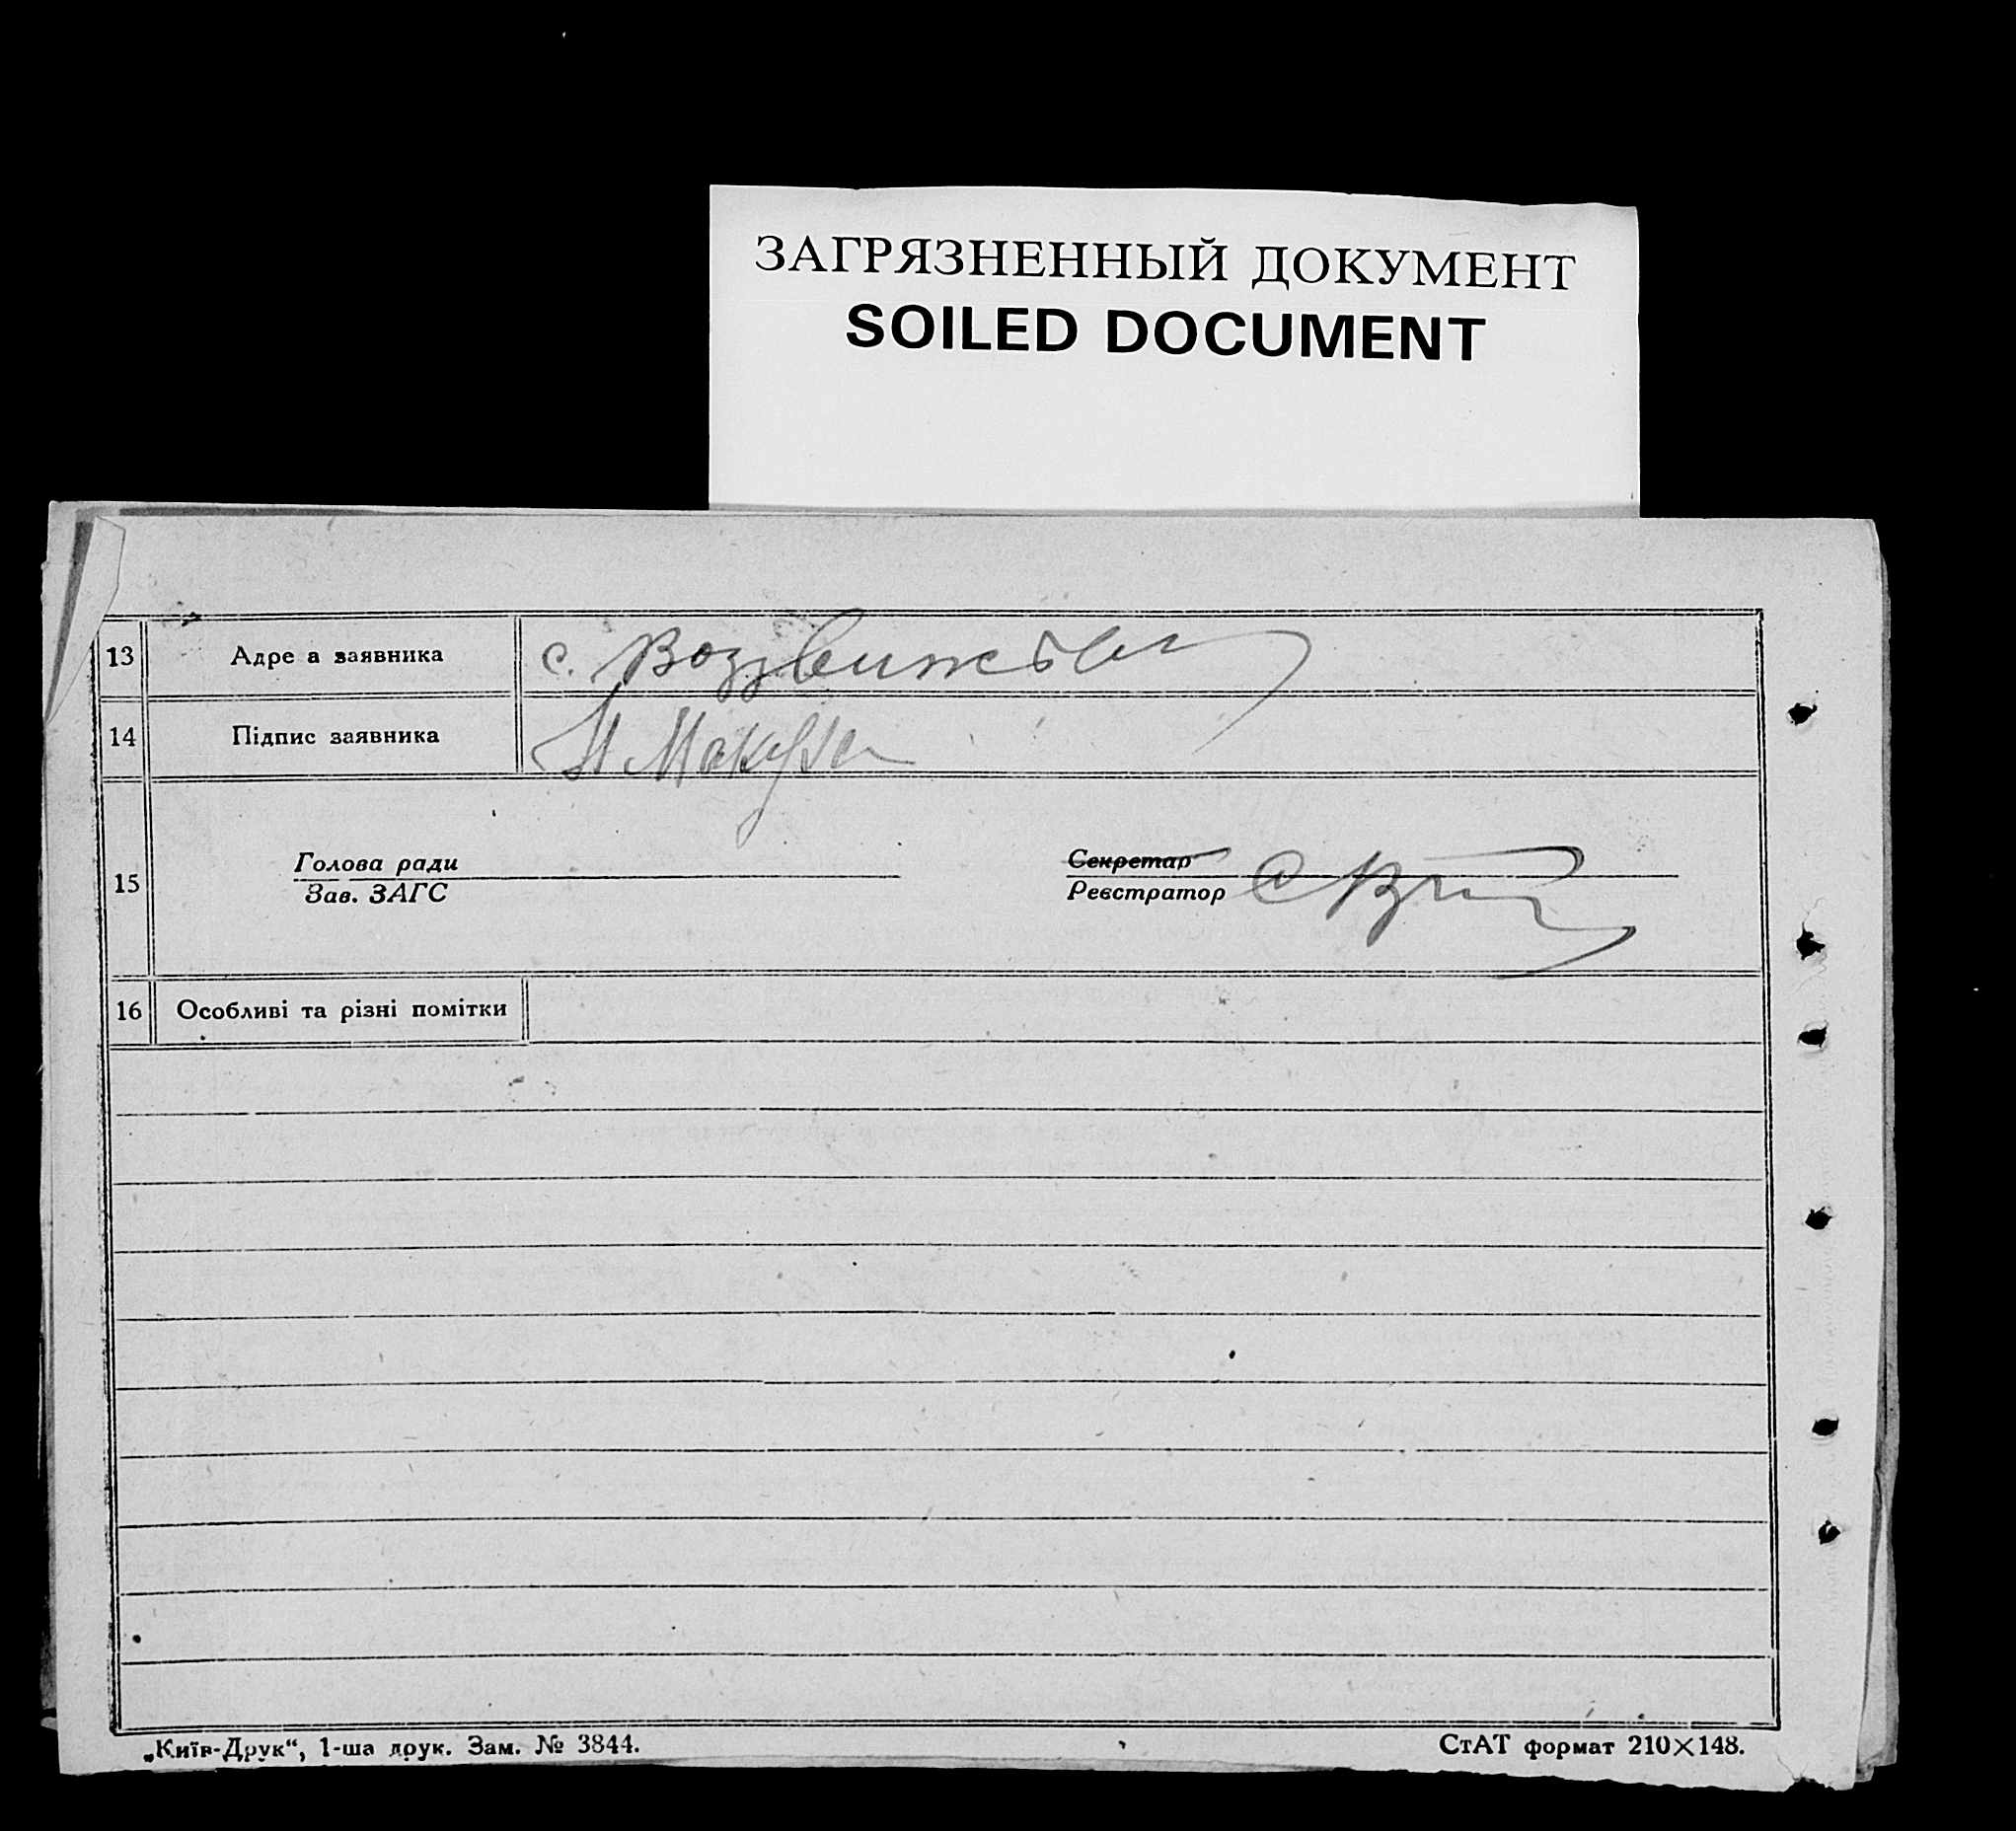 ЗАГРЯЗНЕННЫЙ ДОКУМЕНТ
SOILED DOCUMENT
13 Адре а заявника с. Воздвижсвк
14 Підпис заявника
15 Голова ради Секретар
Зав. ЗАГС Реєстратор
16 Особливі та різні помітки
„Київ-Друк“, 1-ша друк. Зам. № 3844. СтАТ формат 210×148.